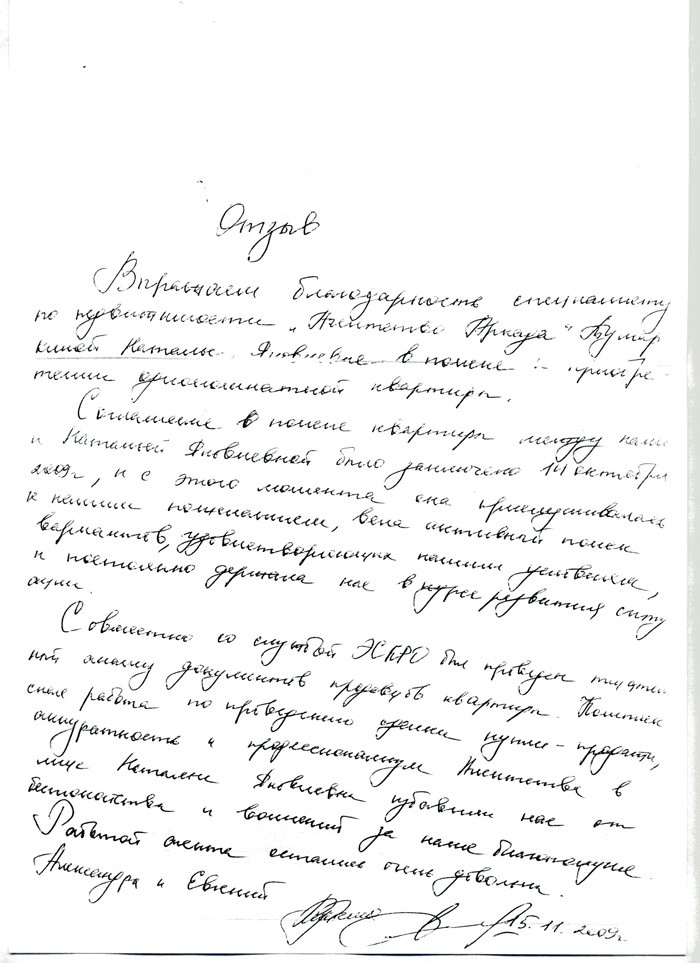 Отзыв
Выражаем благодарность специалисту
по недвижимости "Агентства Аркада" Бумар
киной Наталье Яковлевне в поиске и приобре-
тении однокомнатной квартиры.
Соглашение о поиске квартиры между нами
и Натальей Яковлевной было заключено 14 октября
2009г, и с этого момента она прислушивалась
к нашим пожеланиям, вела активный поиск
вариантов, удовлетворяющих нашим условиям,
и постоянно держала нас в курсе развития ситу
ации.
Совместно со службой ЭСКРО был проведен тщатель
ный анализ документов продавцов квартиры.
работа по проведению сделки купли-продажи,
аккуратность и профессионализм Агентства в
лице Натальи Яковлевны избавили нас от
беспокойства и волнений за наше благополучие.
Работой агента остались очень довольны.
Александра и Евгений
15.11.2009г.